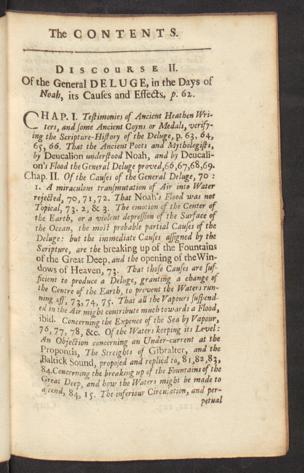 The CONTENTS.
DISCOURSE II.
Of the General DELUGE, in the Days of
Noah, its Causes and Effects, p. 62.
CHAP. I. Testimonies of Ancient Heathen Wri-
ters, and some Ancient Coyns or Medals, verify-
ing the Scripture-History of the Deluge, p. 63, 64,
65, 66. That the Ancient Poets and Mythologists,
by Deucalion understood Noah, and by Deucali-
on's Flood the General Deluge proved, 66,67,68,69.
Chap. II. Of the Causes of the General Deluge, 70 :
1. A miraculous transmutation of Air into Water
rejected, 70, 71, 72. That Noah's Flood was not
Topical, 73. 2, & 3. The emotion of the Center of
the Earth, or a violent depression of the Surface of
the Ocean, the most probable partial Causes of the
Deluge: but the immediate Causes assigned by the
Scripture, are the breaking up of the Fountains
of the Great Deep, and the opening of the Win-
dows of Heaven, 73. That those Causes are suf-
ficient to produce a Deluge, granting a change of
the Centre of the Earth, to prevent the Waters run-
ning off, 73, 74, 75. That all the Vapours suspend-
ed in the Air might contribute much towards a Flood,
ibid. Concerning the Expence of the Sea by Vapour,
76, 77, 78, &c. Of the Waters keeping its Level:
An Objection concerning an Under-current at the
Propontis, The Streights of Gibralter, and the
Baltick Sound, proposed and replied to, 81,82,83,
84. Concerning the breaking up of the Fountains of the
Great Deep, and how the Waters might be made to
ascend, 84, 15. The inferiour Circulation, and per-
petual